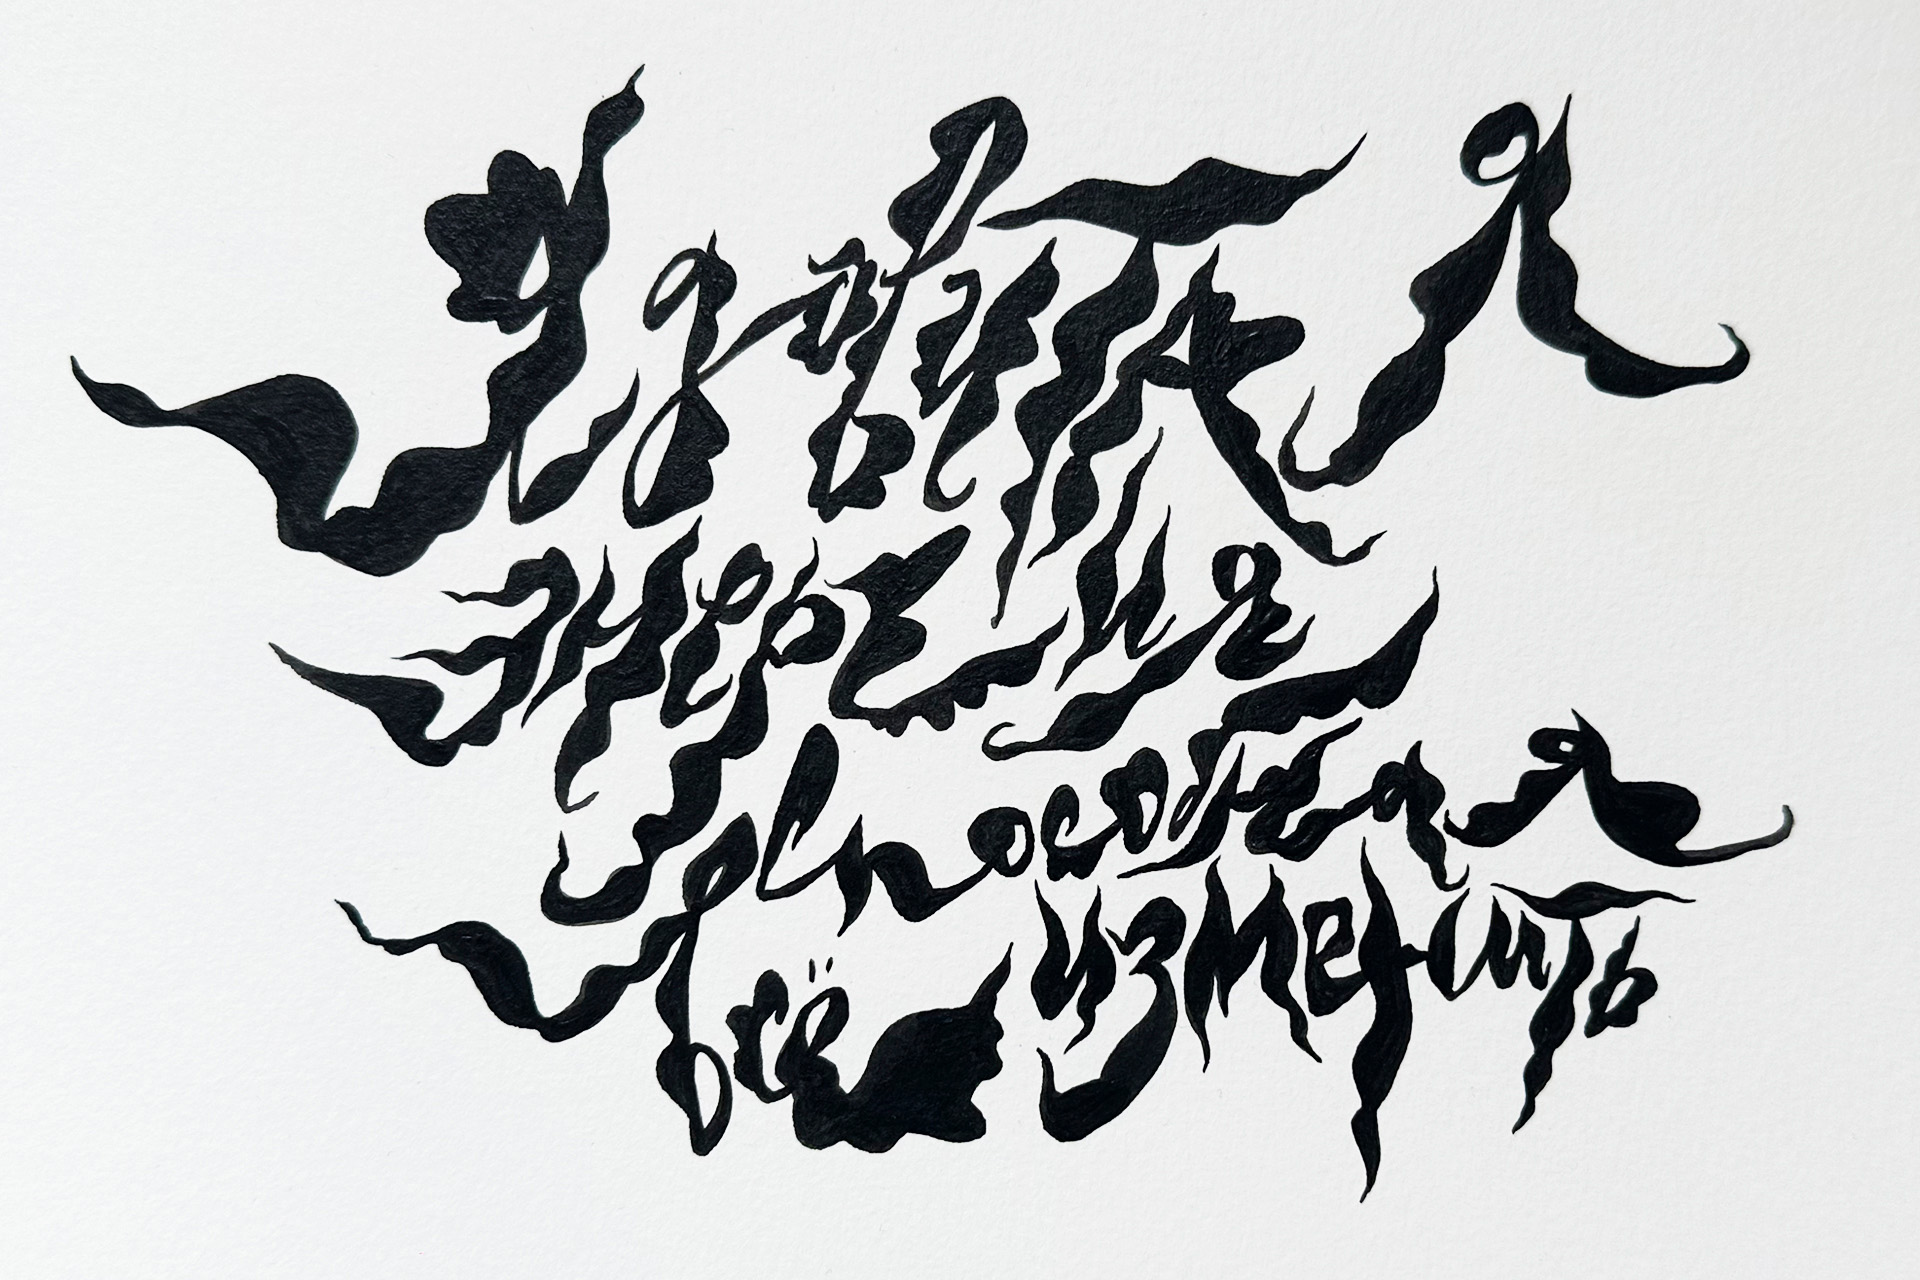 Ядовитая
энергия
способная
всё изменить